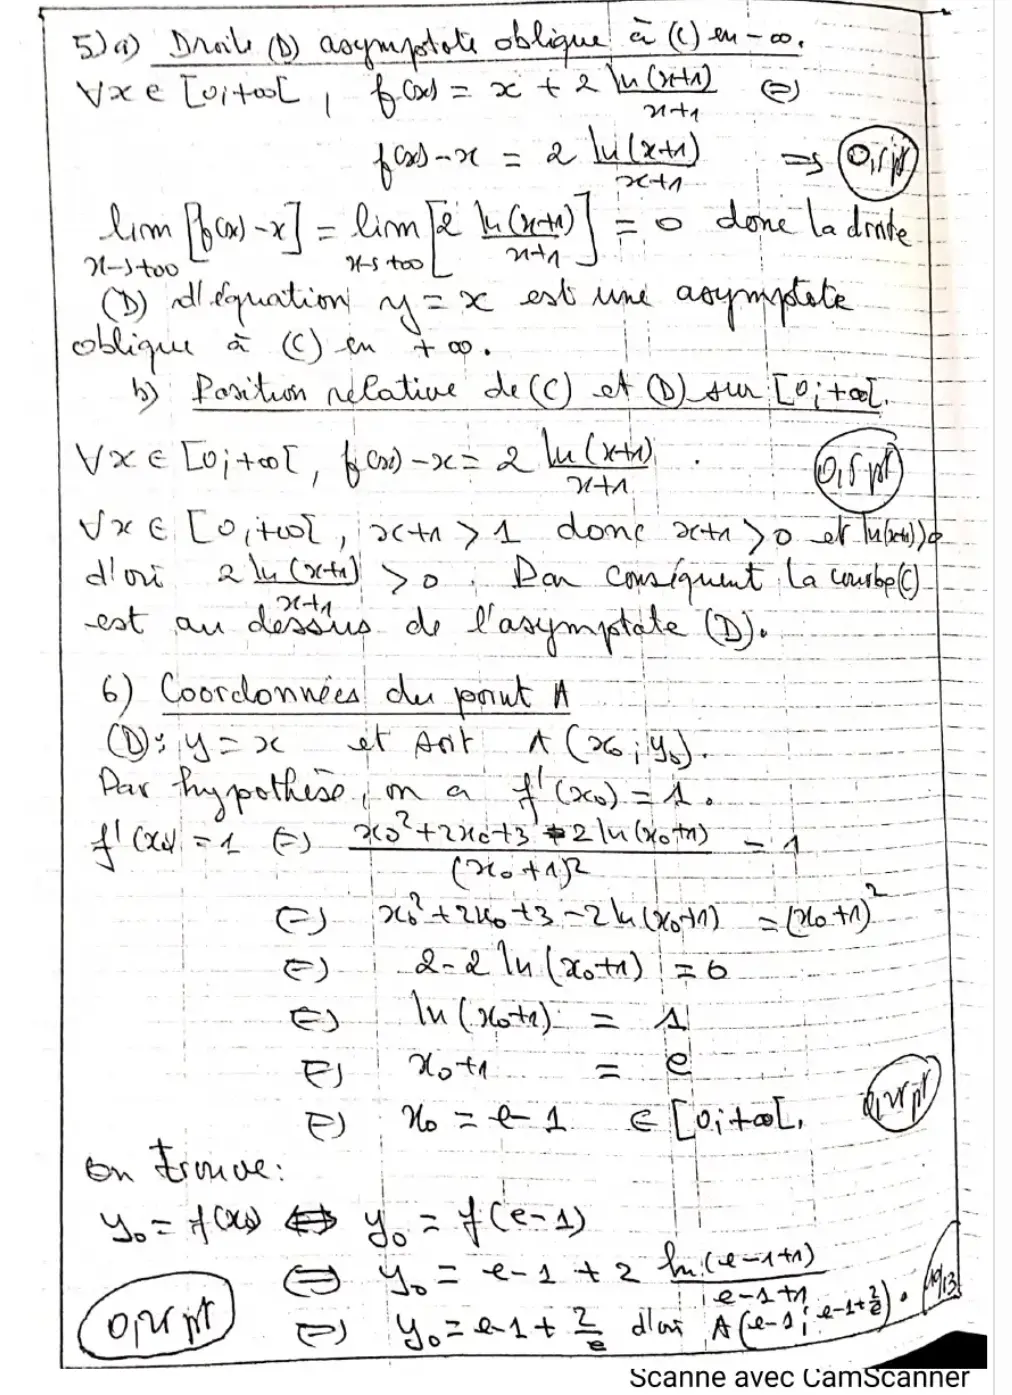 5) a) Droite (D) asymptote oblique à (C) en -∞.
∀x ∈ [0;+∞[ , f(x) = x + 2 ln(x+1)/(x+1) ⇔
f(x)-x = 2 ln(x+1)/(x+1) ⇒ 0,5 pt
lim x→+∞ [f(x)-x] = lim x→+∞ [2 ln(x+1)/(x+1)] = 0 donc la droite
(D) d'équation y = x est une asymptote
oblique à (C) en +∞.
b) Position relative de (C) et (D) sur [0;+∞[.
∀x ∈ [0;+∞[, f(x)-x = 2 ln(x+1)/(x+1) . 0,5 pt
∀x ∈ [0;+∞[, x+1 > 1 donc x+1 > 0 et ln(x+1) > 0
d'où 2 ln(x+1)/(x+1) > 0 . Par conséquent la courbe (C)
est au dessus de l'asymptote (D).
6) Coordonnées du point A
(D): y = x et soit A (x₀ ; y₀).
Par hypothèse, on a f'(x₀) = 1.
f'(x₀) = 1 ⇔ (x₀²+2x₀+3-2 ln(x₀+1))/(x₀+1)² = 1
⇔ x₀²+2x₀+3-2 ln(x₀+1) = (x₀+1)²
⇔ 2-2 ln(x₀+1) = 0
⇔ ln(x₀+1) = 1
⇔ x₀+1 = e
⇔ x₀ = e-1 ∈ [0;+∞[, 0,25 pt
On trouve:
y₀ = f(x₀) ⇔ y₀ = f(e-1)
⇔ y₀ = e-1 + 2 ln(e-1+1)/(e-1+1)
0,25 pt ⇔ y₀ = e-1 + 2/e d'où A(e-1; e-1+2/e).
Scanné avec CamScanner